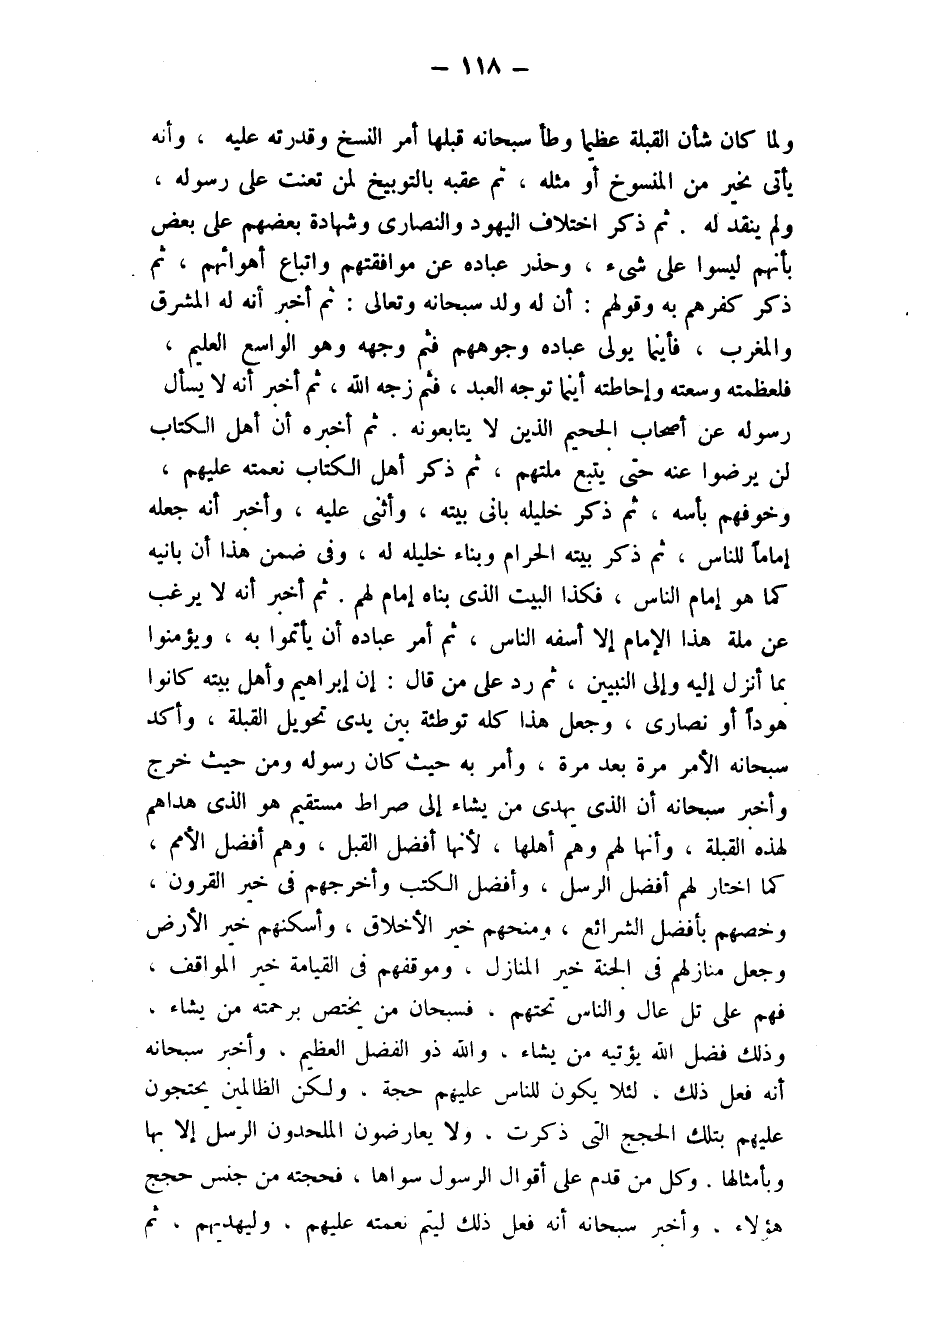 – ١١٨ –
ولما كان شأن القبلة عظيما وطأ سبحانه قبلها أمر النسخ وقدرته عليه ، وأنه
يأتى بخير من المنسوخ أو مثله ، ثم عقبه بالتوبيخ لمن تعنت على رسوله ،
ولم ينقد له . ثم ذكر اختلاف اليهود والنصارى وشهادة بعضهم على بعض
بأنهم ليسوا على شىء ، وحذر عباده عن موافقتهم واتباع أهوائهم ، ثم
ذكر كفرهم به وقولهم : أن له ولد سبحانه وتعالى : ثم أخبر أنه له المشرق
والمغرب ، فأينما يولى عباده وجوههم فثم وجهه وهو الواسع العليم ،
فلعظمته وسعته وإحاطته أينما توجه العبد ، فثم زجه الله ، ثم أخبر أنه لا يسأل
رسوله عن أصحاب الجحيم الذين لا يتابعونه . ثم أخبره أن أهل الكتاب
لن يرضوا عنه حتى يتبع ملتهم ، ثم ذكر أهل الكتاب نعمته عليهم ،
وخوفهم بأسه ، ثم ذكر خليله بانى بيته ، وأثنى عليه ، وأخبر أنه جعله
إماماً للناس ، ثم ذكر بيته الحرام وبناء خليله له ، وفى ضمن هذا أن بانيه
كما هو إمام الناس ، فكذا البيت الذى بناه إمام لهم . ثم أخبر أنه لا يرغب
عن ملة هذا الإمام إلا أسفه الناس ، ثم أمر عباده أن يأتموا به ، ويؤمنوا
بما أنزل إليه وإلى النبيين ، ثم رد على من قال : إن إبراهيم وأهل بيته كانوا
هوداً أو نصارى ، وجعل هذا كله توطئة بين يدى تحويل القبلة ، وأكد
سبحانه الأمر مرة بعد مرة ، وأمر به حيث كان رسوله ومن حيث خرج
وأخبر سبحانه أن الذى يهدى من يشاء إلى صراط مستقيم هو الذى هداهم
لهذه القبلة ، وأنها لهم وهم أهلها ، لأنها أفضل القبل ، وهم أفضل الأمم ،
كما اختار لهم أفضل الرسل ، وأفضل الكتب وأخرجهم فى خير القرون ،
وخصهم بأفضل الشرائع ، ومنحهم خير الأخلاق ، وأسكنهم خير الأرض
وجعل منازلهم فى الجنة خير المنازل ، وموقفهم فى القيامة خير المواقف ،
فهم على تل عال والناس تحتهم . فسبحان من يختص برحمته من يشاء .
وذلك فضل الله يؤتيه من يشاء . والله ذو الفضل العظيم . وأخبر سبحانه
أنه فعل ذلك . لئلا يكون للناس عليهم حجة . ولكن الظالمين يحتجون
عليهم بتلك الحجج التى ذكرت . ولا يعارضون الملحدون الرسل إلا بها
وبأمثالها . وكل من قدم على أقوال الرسول سواها ، فحجته من جنس حجج
هؤلاء . وأخبر سبحانه أنه فعل ذلك ليتم نعمته عليهم . وليهديهم . ثم